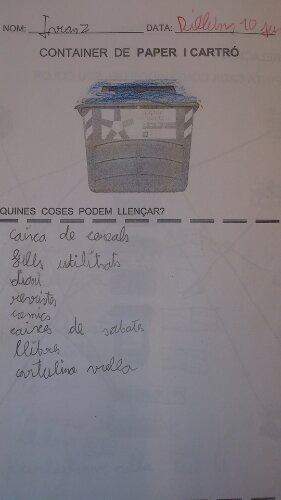 NOM: Ivan Z DATA: Dilluns 10
CONTAINER DE PAPER I CARTRÓ
QUINES COSES PODEM LLENÇAR?
caixa de cereals
fulls utilitzats
diari
revistes
comics
caixes de sabates
llibres
cartulina vella